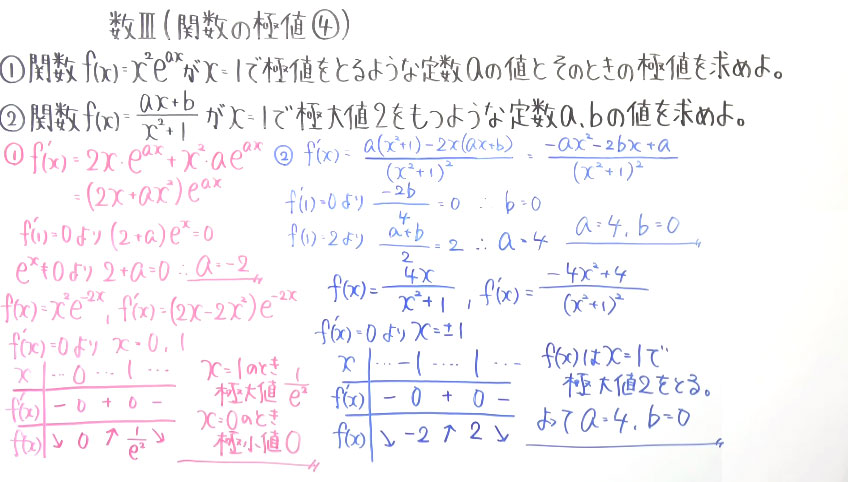 数Ⅲ(関数の極値④)
①関数 f(x)=x²e^{ax}がx=1で極値をとるような定数aの値とそのときの極値を求めよ。
②関数 f(x)=\frac{ax+b}{x²+1} がx=1で極大値2をもつような定数a、bの値を求めよ。
① f'(x)=2x・e^{ax}+x²・ae^{ax}
=(2x+ax²)e^{ax}
f'(1)=0より(2+a)e^x=0
e^x≠0より 2+a=0 ∴a=-2
f(x)=x²e^{-2x}, f'(x)=(2x-2x²)e^{-2x}
f'(x)=0より x=0, 1
x | … 0 … 1 …
f'(x) | - 0 + 0 -
f(x) | ↘ 0 ↗ \frac{1}{e²} ↘
x=1のとき
極大値 \frac{1}{e²}
x=0のとき
極小値 0
② f'(x)=\frac{a(x²+1)-2x(ax+b)}{(x²+1)²} = \frac{-ax²-2bx+a}{(x²+1)²}
f'(1)=0より \frac{-2b}{4}=0 ∴ b=0
f(1)=2より \frac{a+b}{2}=2 ∴ a=4 a=4, b=0
f(x)=\frac{4x}{x²+1}, f'(x)=\frac{-4x²+4}{(x²+1)²}
f'(x)=0より x=±1
x | … -1 … 1 …
f'(x) | - 0 + 0 -
f(x) | ↘ -2 ↗ 2 ↘
f(x)はx=1で
極大値2をとる。
よって a=4, b=0